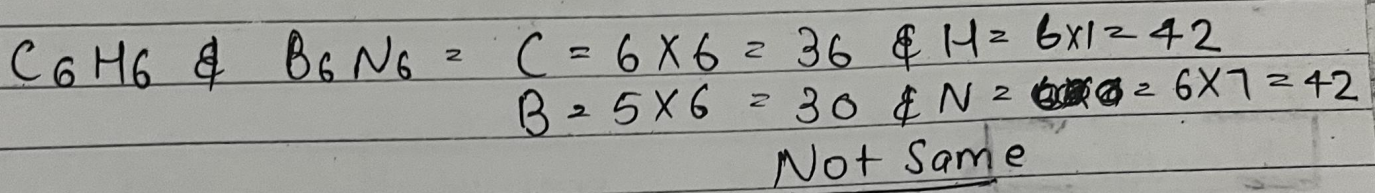 C6H6 & B6N6 = C = 6 X 6 = 36 & H = 6x1 = 42
B = 5 X 6 = 30 & N = = 6X7 = 42
Not Same